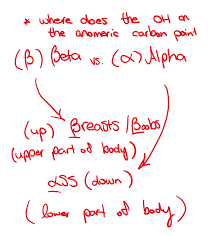 * where does the OH on
the anomeric carbon point
(β) Beta vs. (α) Alpha
(up) Breasts / Boobs
(upper part of body)
αSS (down)
(lower part of body)